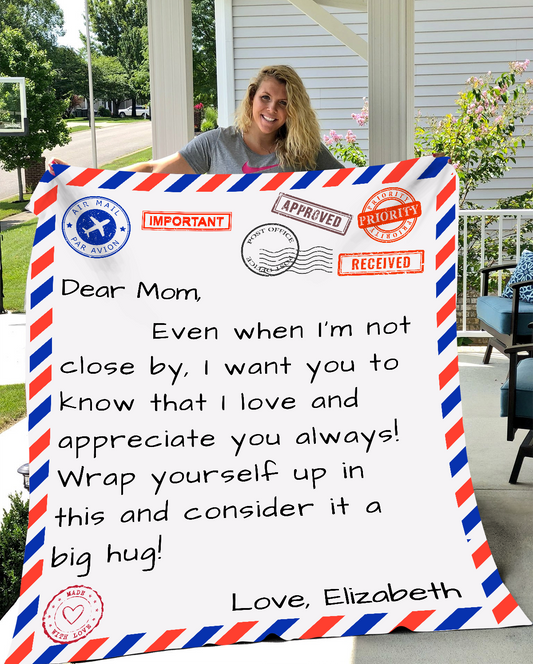 AIR MAIL
PAR AVION
IMPORTANT
APPROVED
PRIORITY
PRIORITY
PRIORITY
POST OFFICE
POST OFFICE
RECEIVED
Dear Mom,
Even when I'm not
close by, I want you to
know that I love and
appreciate you always!
Wrap yourself up in
this and consider it a
big hug!
Love, Elizabeth
MADE
WITH LOVE